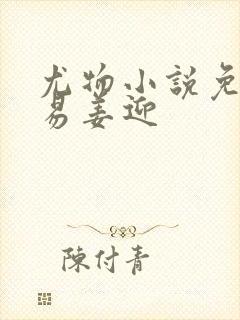 尤物小説免
易姜迎
陳付青